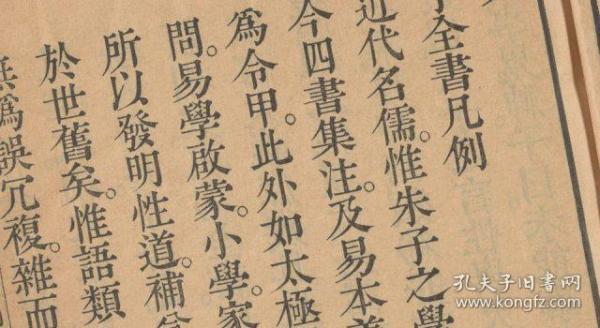 全書凡例
近代名儒。惟朱子之學
今四書集注。及易本
為令甲。此外如太極
問。易學啟蒙。小學。家
所以發明性道。補
於世舊矣。惟語類
為誤冗複。雜而
孔夫子旧书网
www.kongfz.com